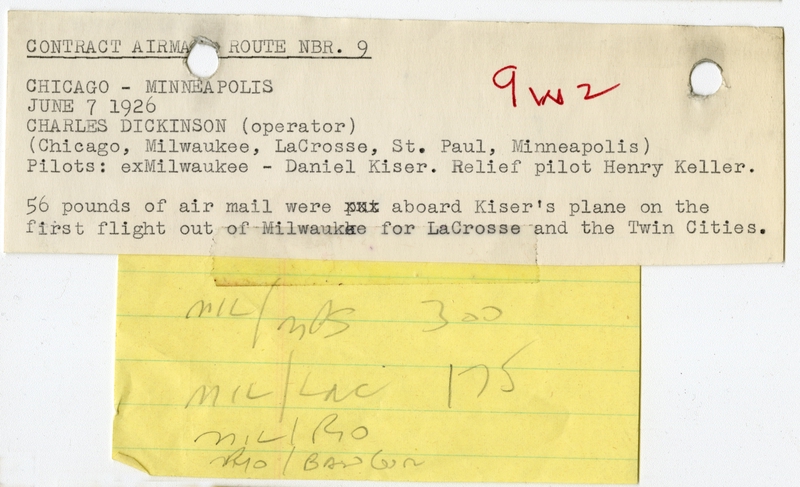 CONTRACT AIRMA ROUTE NBR. 9
9w2
CHICAGO - MINNEAPOLIS
JUNE 7 1926
CHARLES DICKINSON (operator)
(Chicago, Milwaukee, LaCrosse, St. Paul, Minneapolis)
Pilots: exMilwaukee - Daniel Kiser. Relief pilot Henry Keller.
56 pounds of air mail were aboard Kiser's plane on the
first flight out of Milwaukee for LaCrosse and the Twin Cities.
MIL/MPS 300
MIL/LAC 175
MIL/